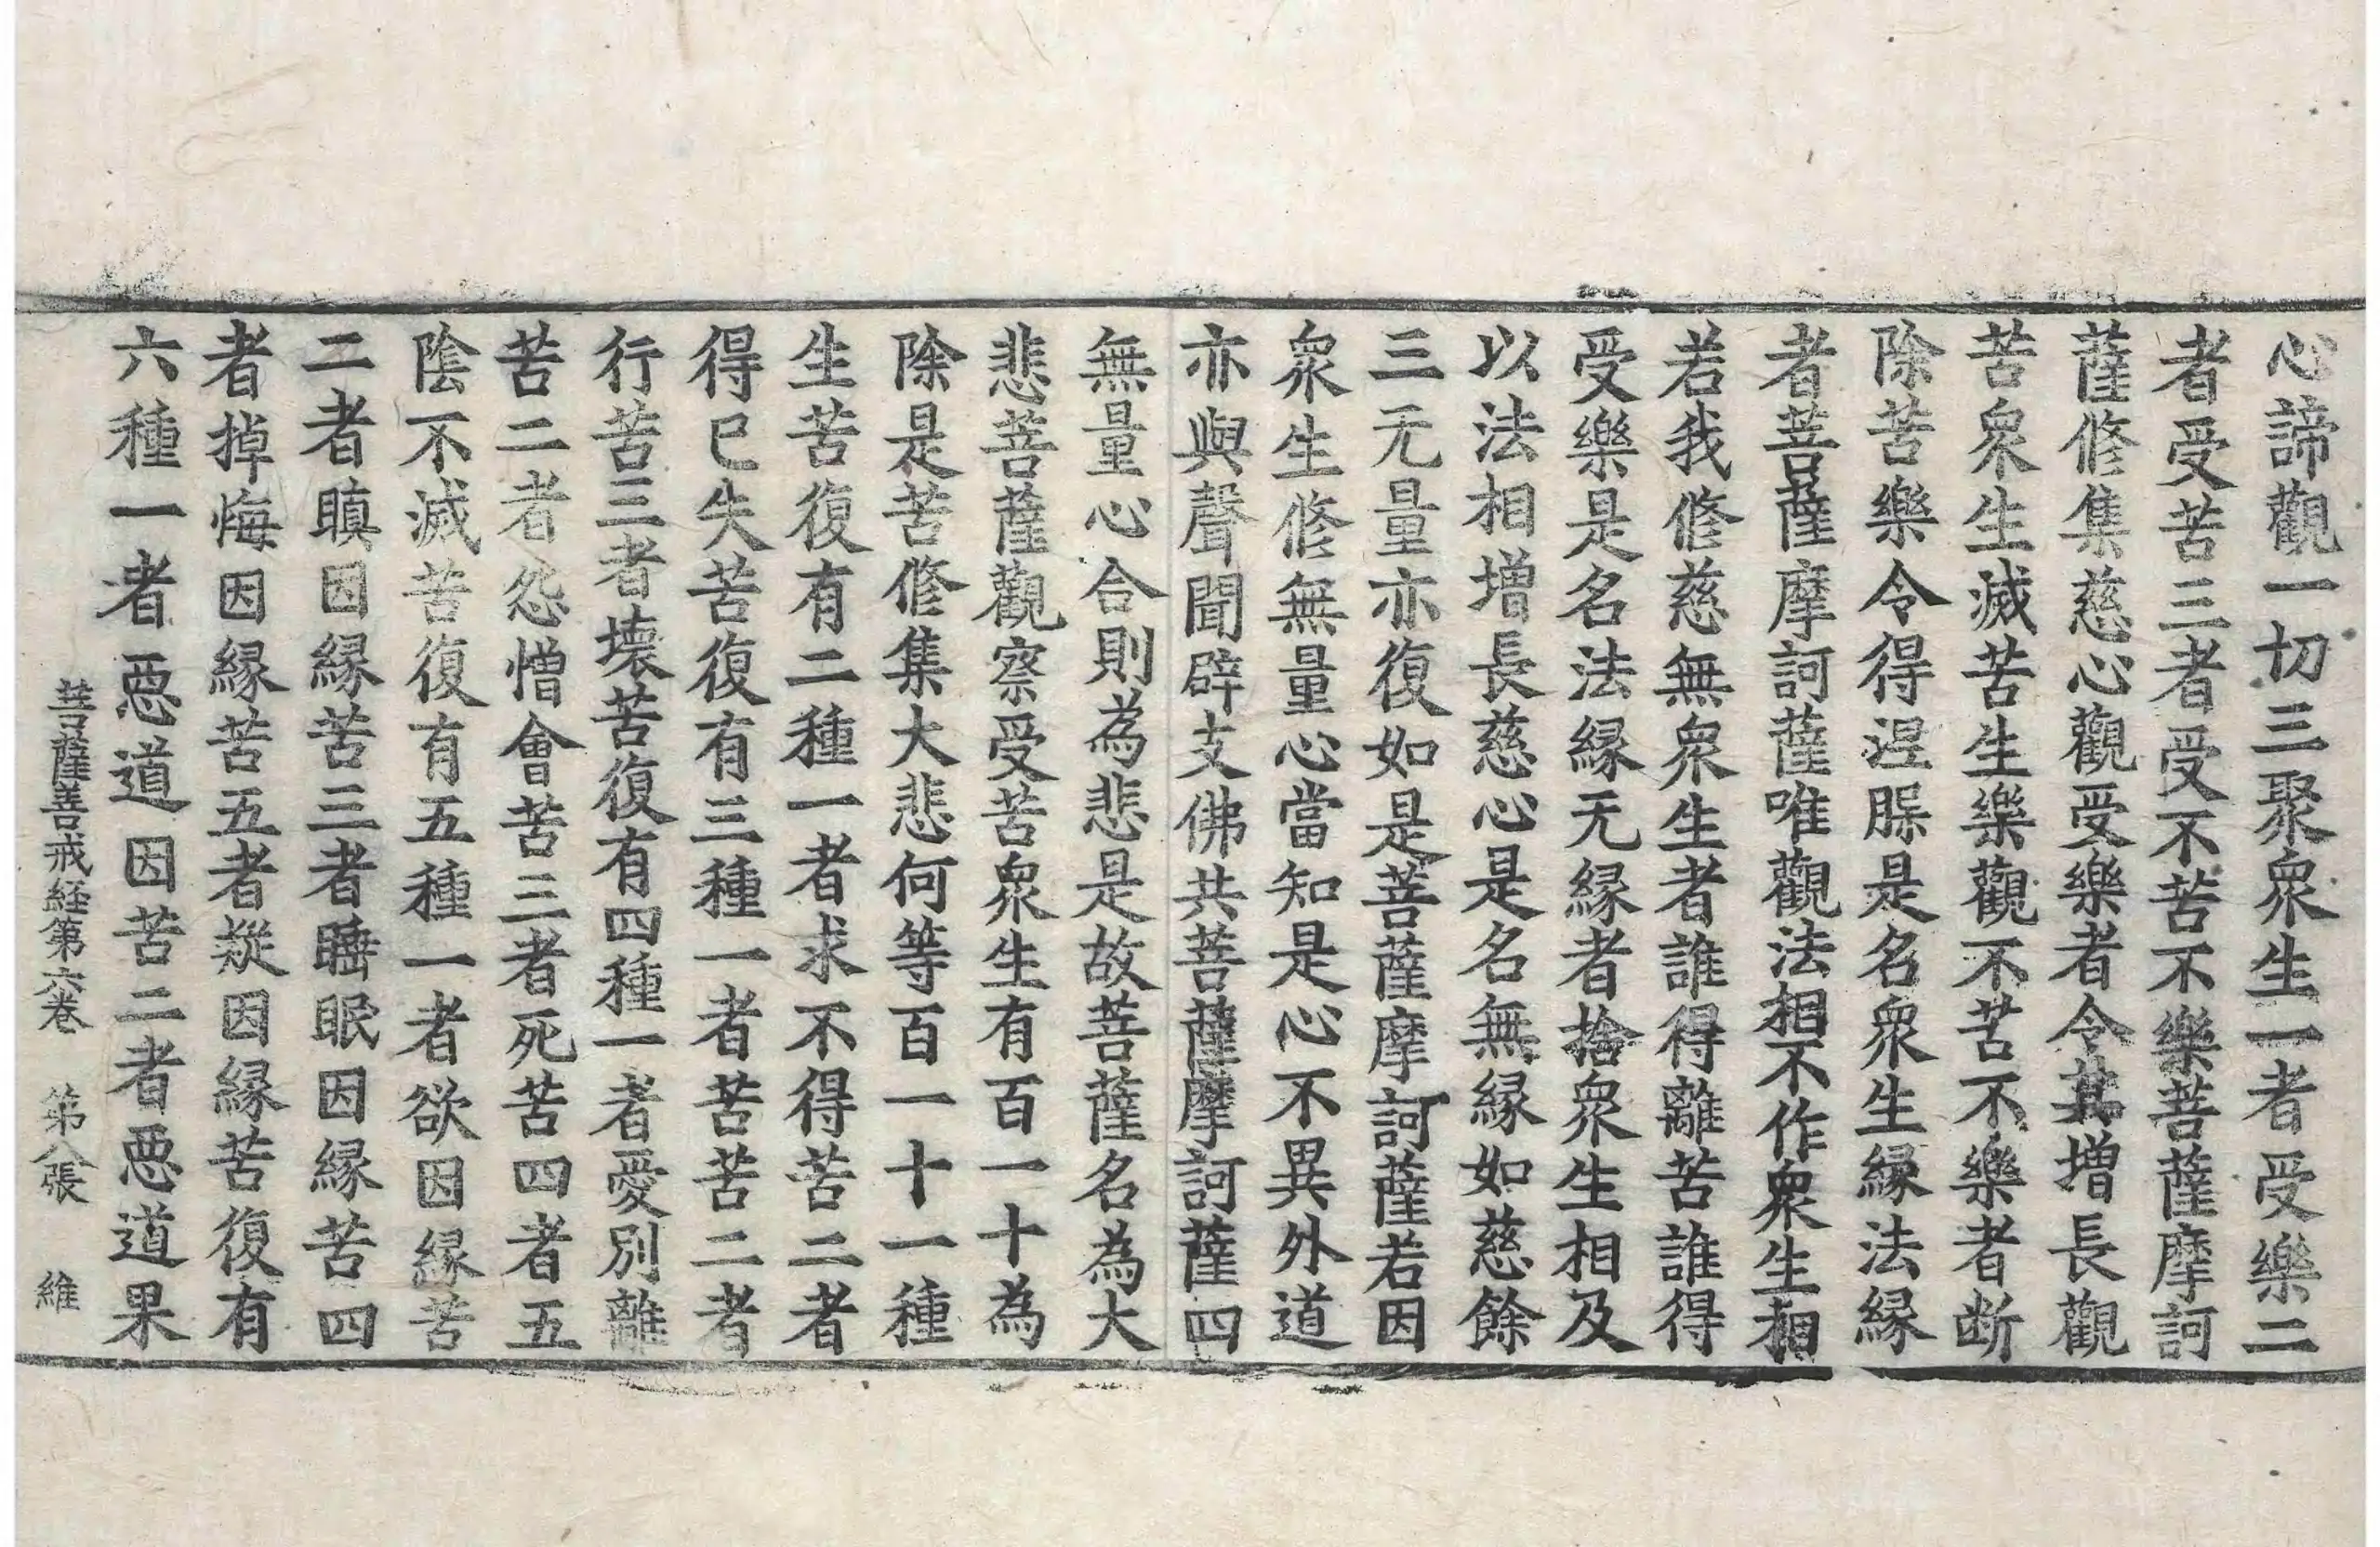 心諦觀一切三聚衆生一者受樂二
者受苦三者受不苦不樂菩薩摩訶
薩修集慈心觀受樂者令其增長觀
苦衆生滅苦生樂觀不苦不樂者断
除苦樂令得涅槃是名衆生緣法緣
者菩薩摩訶薩唯觀法相不作衆生相
若我修慈無衆生者誰得離苦誰得
受樂是名法緣无緣者捨衆生相及
以法相增長慈心是名無緣如慈餘
三无量亦復如是菩薩摩訶薩若因
衆生修無量心當知是心不異外道
亦與聲聞辟支佛共菩薩摩訶薩四
無量心合則為悲是故菩薩名為大
悲菩薩觀察受苦衆生有百一十為
除是苦修集大悲何等百一十一種
生苦復有二種一者求不得苦二者
得已失苦復有三種一者苦苦二者
行苦三者壞苦復有四種一者愛別離
苦二者怨憎會苦三者死苦四者五
陰不滅苦復有五種一者欲因緣苦
二者瞋因緣苦三者睡眠因緣苦四
者掉悔因緣苦五者疑因緣苦復有
六種一者惡道因苦二者惡道果
菩薩善戒経第六卷 第八張 維